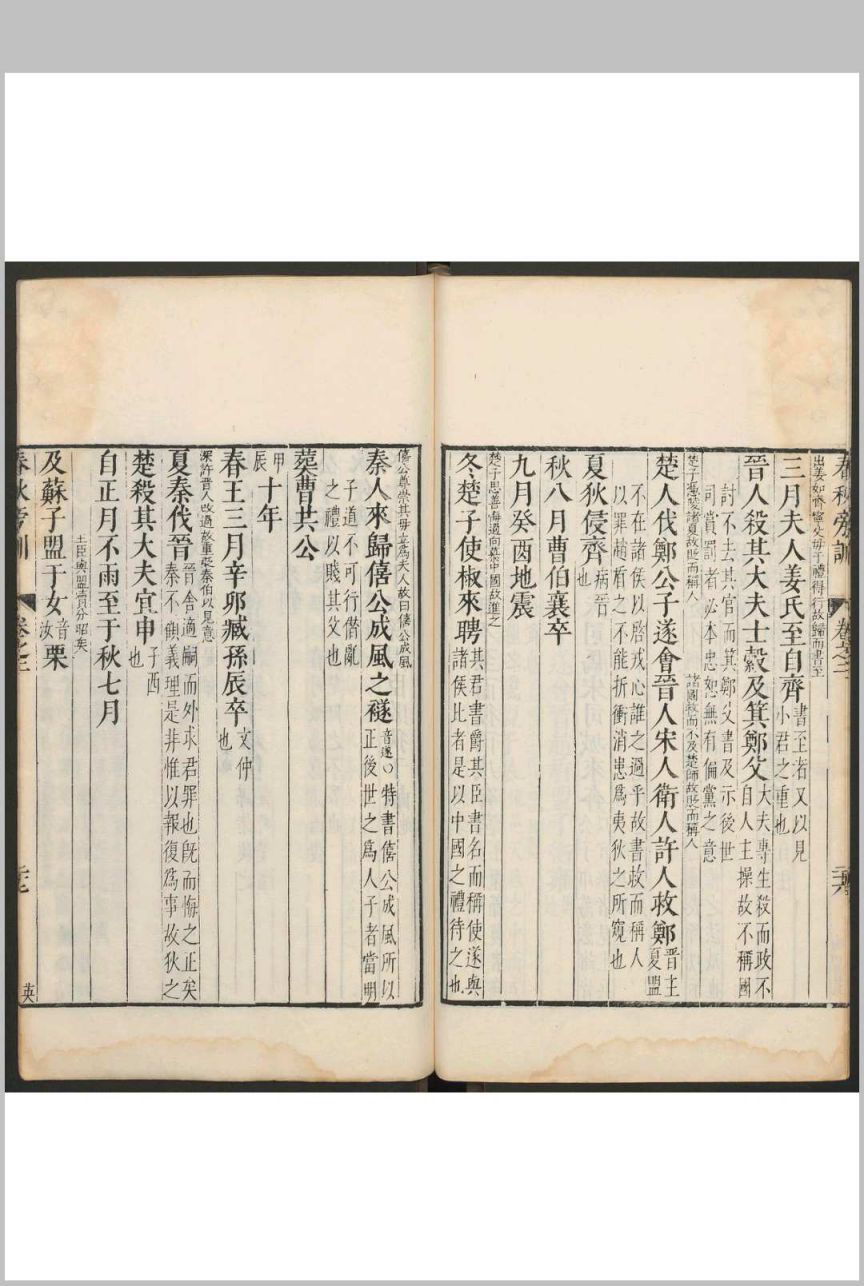 春秋旁訓 卷之二 二十六
出姜如齊寧父母于禮得行故歸而書至
三月夫人姜氏至自齊書至者又以見小君之重也
晉人殺其大夫士縠及箕鄭父大夫專生殺而政不自人主操故不稱國
討不去其官而箕鄭父書及示後世司賞罰者必本忠恕無有偏黨之意
楚子憑陵諸夏故貶而稱人 諸國救而不及楚師故貶而稱人
楚人伐鄭公子遂會晉人宋人衛人許人救鄭晉主夏盟
不在諸侯以啓戎心誰之過乎故書救而稱人以罪趙盾之不能折衝消患爲夷狄之所窺也
夏狄侵齊病晉也
秋八月曹伯襄卒
九月癸酉地震
楚子思善悔過向慕中國故進之
冬楚子使椒來聘其君書爵其臣書名而稱使遂與諸侯比者是以中國之禮待之也
僖公尊崇其母立爲夫人故曰僖公成風
秦人來歸僖公成風之襚音遂○特書僖公成風所以正後世之爲人子者當明
子道不可行僭亂之禮以賤其父也
葬曹共公
甲辰十年
春王三月辛卯臧孫辰卒文仲也
深許晉人改過故重貶秦伯以見意
夏秦伐晉晉舍適嗣而外求君罪也旣而悔之正矣秦不顧義理是非惟以報復爲事故狄之
楚殺其大夫宜申子西也
自正月不雨至于秋七月
王臣與盟
及蘇子盟于女音汝栗
春秋旁訓 卷之二 二十七 英